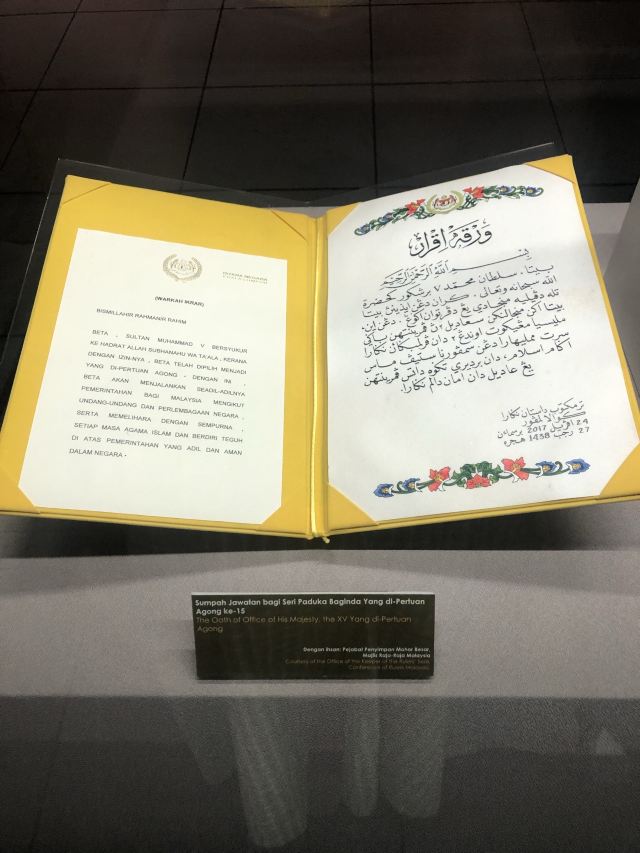 ISTANA NEGARA
KUALA LUMPUR
(WARKAH IKRAR)
BISMILLAHIR RAHMANIR RAHIM
BETA - SULTAN MUHAMMAD V BERSYUKUR
KE HADRAT ALLAH SUBHANAHU WA TA'ALA, KERANA
DENGAN IZIN-NYA - BETA TELAH DIPILIH MENJADI
YANG DI-PERTUAN AGONG - DENGAN INI -
BETA AKAN MENJALANKAN SEADIL-ADILNYA
PEMERINTAHAN BAGI MALAYSIA MENGIKUT
UNDANG-UNDANG DAN PERLEMBAGAAN NEGARA -
SERTA MEMELIHARA DENGAN SEMPURNA -
SETIAP MASA AGAMA ISLAM DAN BERDIRI TEGUH
DI ATAS PEMERINTAHAN YANG ADIL DAN AMAN
DALAM NEGARA -
ورقه اقرار
بسم الله الرحمن الرحيم
بيتا، سلطان محمد ٧ برشكور كحضرة
الله سبحانه وتعالى، كران دڠن ايذينڽ بيتا
تله دڤيليه منجادي يڠ دڤرتوان اڬوڠ. دڠن اين،
بيتا اكن منجالنكن سعاديل٢ڽ ڤمرينتهن باݢي
مليسيا مڠيكوت اوندڠ٢ دان ڤرلمباݢاءن نݢارا
سرت ممليهارا دڠن سمڤورنا ستيڤ ماس
اݢام اسلام، دان برديري تݢوه داتس ڤمرينتهن
يڠ عاديل دان امان دالم نݢارا.
كوالا لمڤور
24 اڤريل 2017 برسماءن
27 رجب 1438 هجره
Sumpah Jawatan bagi Seri Paduka Baginda Yang di-Pertuan
Agong ke-15
The Oath of Office of His Majesty, the XV Yang di-Pertuan
Agong
Dengan ihsan: Pejabat Penyimpan Mohor Besar,
Majlis Raja-Raja Malaysia
Courtesy of the Office of the Keeper of the Rulers' Seal,
Conference of Rulers Malaysia